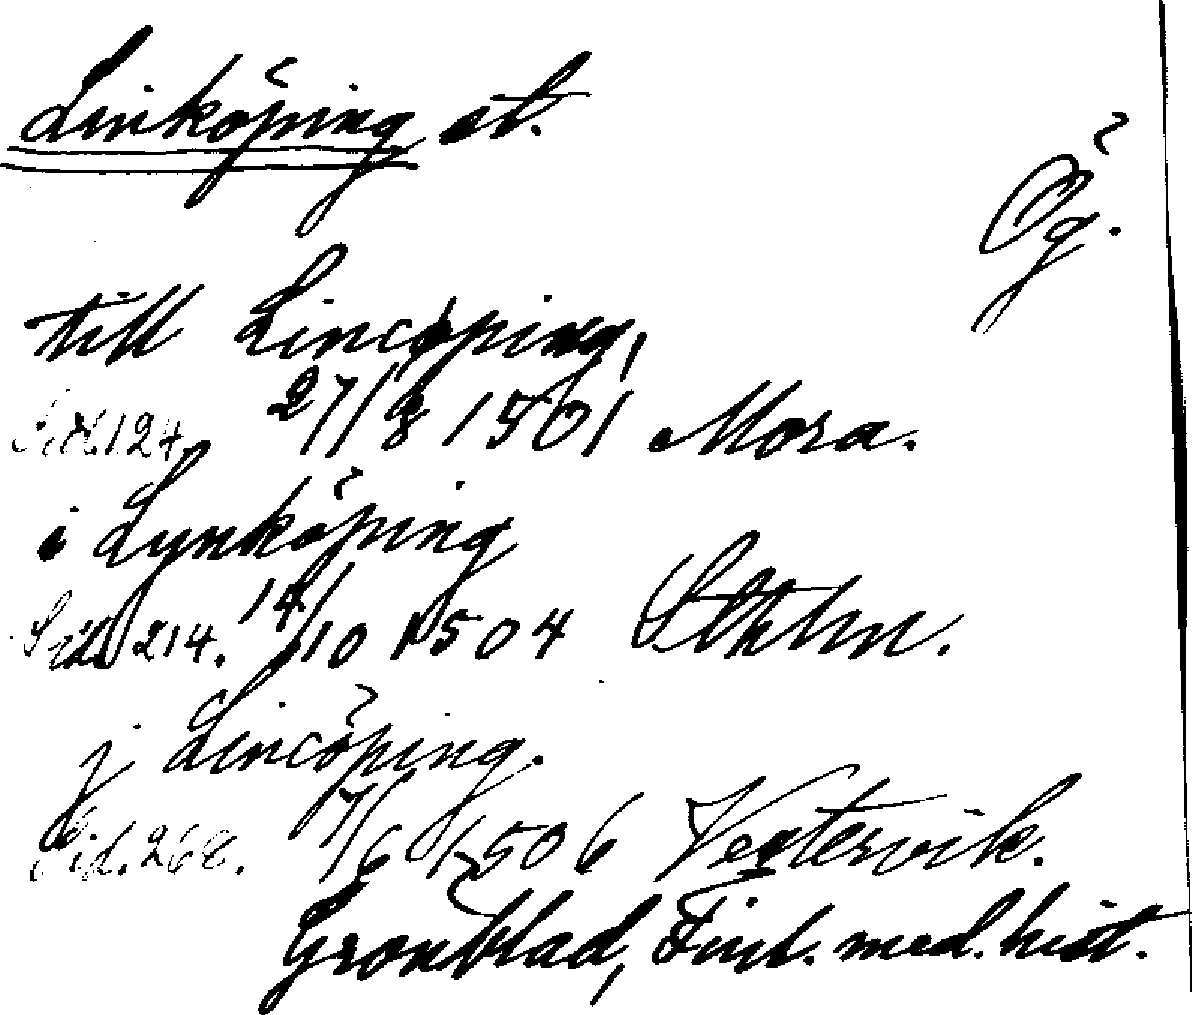 Linköping st.
Ög.
till Lincöping,
Sid. 124. 27/8 1501 Mora.
i Lynköping
Sid. 214. 14/10 1504 Sthlm.
j Lincöping.
Sid. 268. 7/6 1506 Vestervik.
Grönblad, Finl. med. hist.